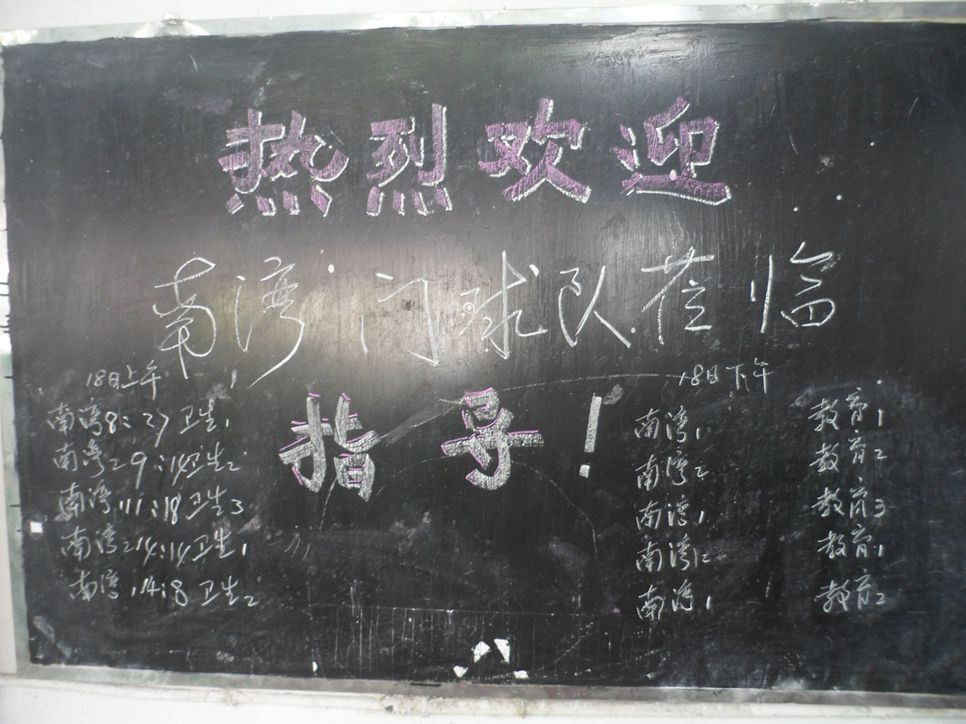 热烈欢迎
南湾门球队莅临
指导！
18日上午
南湾 8:27 卫生1
南湾2 9:14 卫生2
南湾1 11:18 卫生3
南湾2 14:14 卫生1
南湾1 14:8 卫生2
18日下午
南湾1 教育1
南湾2 教育2
南湾1 教育3
南湾2 教育1
南湾1 教育2